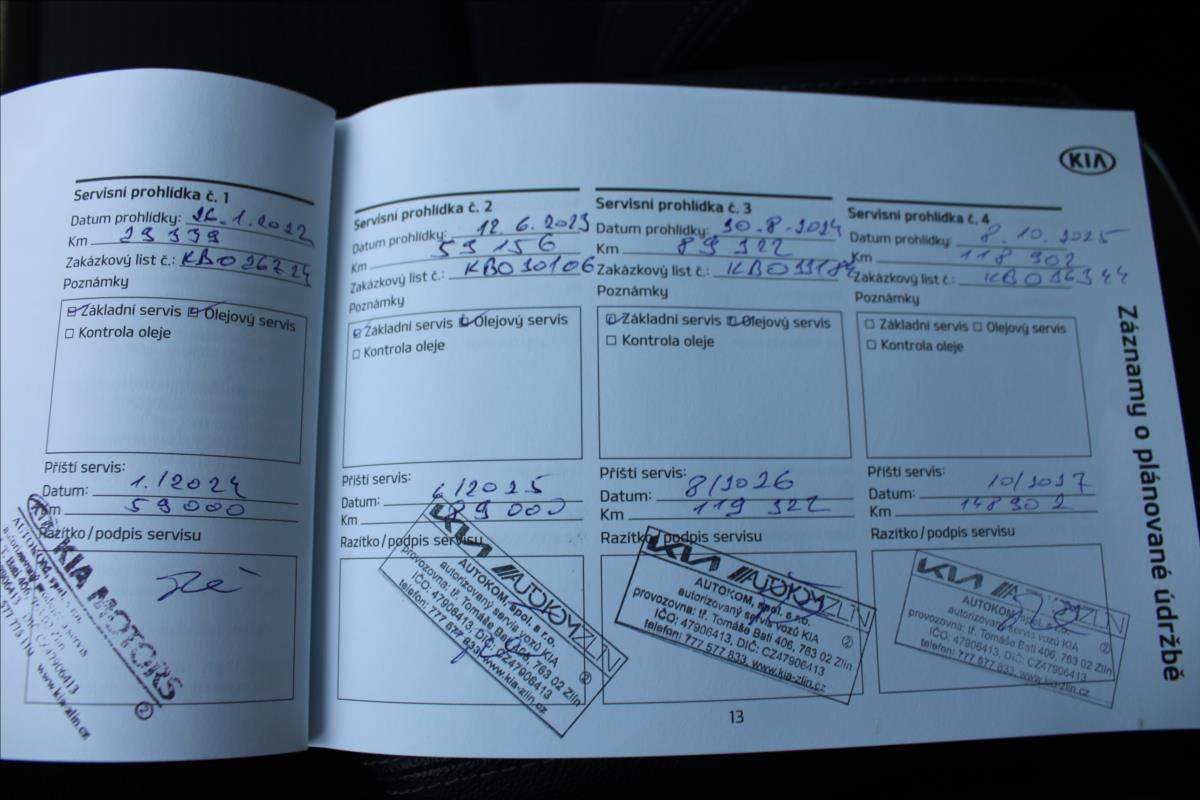 KIA
Servisní prohlídka č. 1
Datum prohlídky:
Km 29339
Zakázkový list č.:
Poznámky
Základní servis Olejový servis
Kontrola oleje
Příští servis:
Datum: 1./2024
Km 59000
Razítko/podpis servisu
KIA MOTORS
www.kia-zlin.cz
Servisní prohlídka č. 2
Datum prohlídky: 12. 6. 2023
Km 59156
Zakázkový list č.: KBO30106
Poznámky
Základní servis Olejový servis
Kontrola oleje
Příští servis:
Datum: 6/2025
Km 89000
Razítko/podpis servisu
KIA AUTOKOMZLIN
AUTOKOM, spol. s r.o.
autorizovaný servis vozů KIA
provozovna: tř. Tomáše Bati 406, 763 02 Zlín
IČO: 47906413, DIČ: CZ47906413
telefon: 777 577 633, www.kia-zlin.cz
Servisní prohlídka č. 3
Datum prohlídky: 30.8.2024
Km 89322
Zakázkový list č.:
Poznámky
Základní servis Olejový servis
Kontrola oleje
Příští servis:
Datum: 8/2026
Km 119 322
Razítko/podpis servisu
KIA AUTOKOMZLIN
AUTOKOM, spol. s r.o.
autorizovaný servis vozů KIA
provozovna: tř. Tomáše Bati 406, 763 02 Zlín
IČO: 47906413, DIČ: CZ47906413
telefon: 777 577 633, www.kia-zlin.cz
Servisní prohlídka č. 4
Datum prohlídky: 8. 10. 2025
Km 118 902
Zakázkový list č.: KBO36344
Poznámky
Základní servis Olejový servis
Kontrola oleje
Příští servis:
Datum: 10/2027
Km 148902
Razítko/podpis servisu
KIA AUTOKOMZLIN
AUTOKOM, spol. s r.o.
autorizovaný servis vozů KIA
provozovna: tř. Tomáše Bati 406, 763 02 Zlín
IČO: 47906413, DIČ: CZ47906413
telefon: 777 577 633, www.kia-zlin.cz
Záznamy o plánované údržbě
13